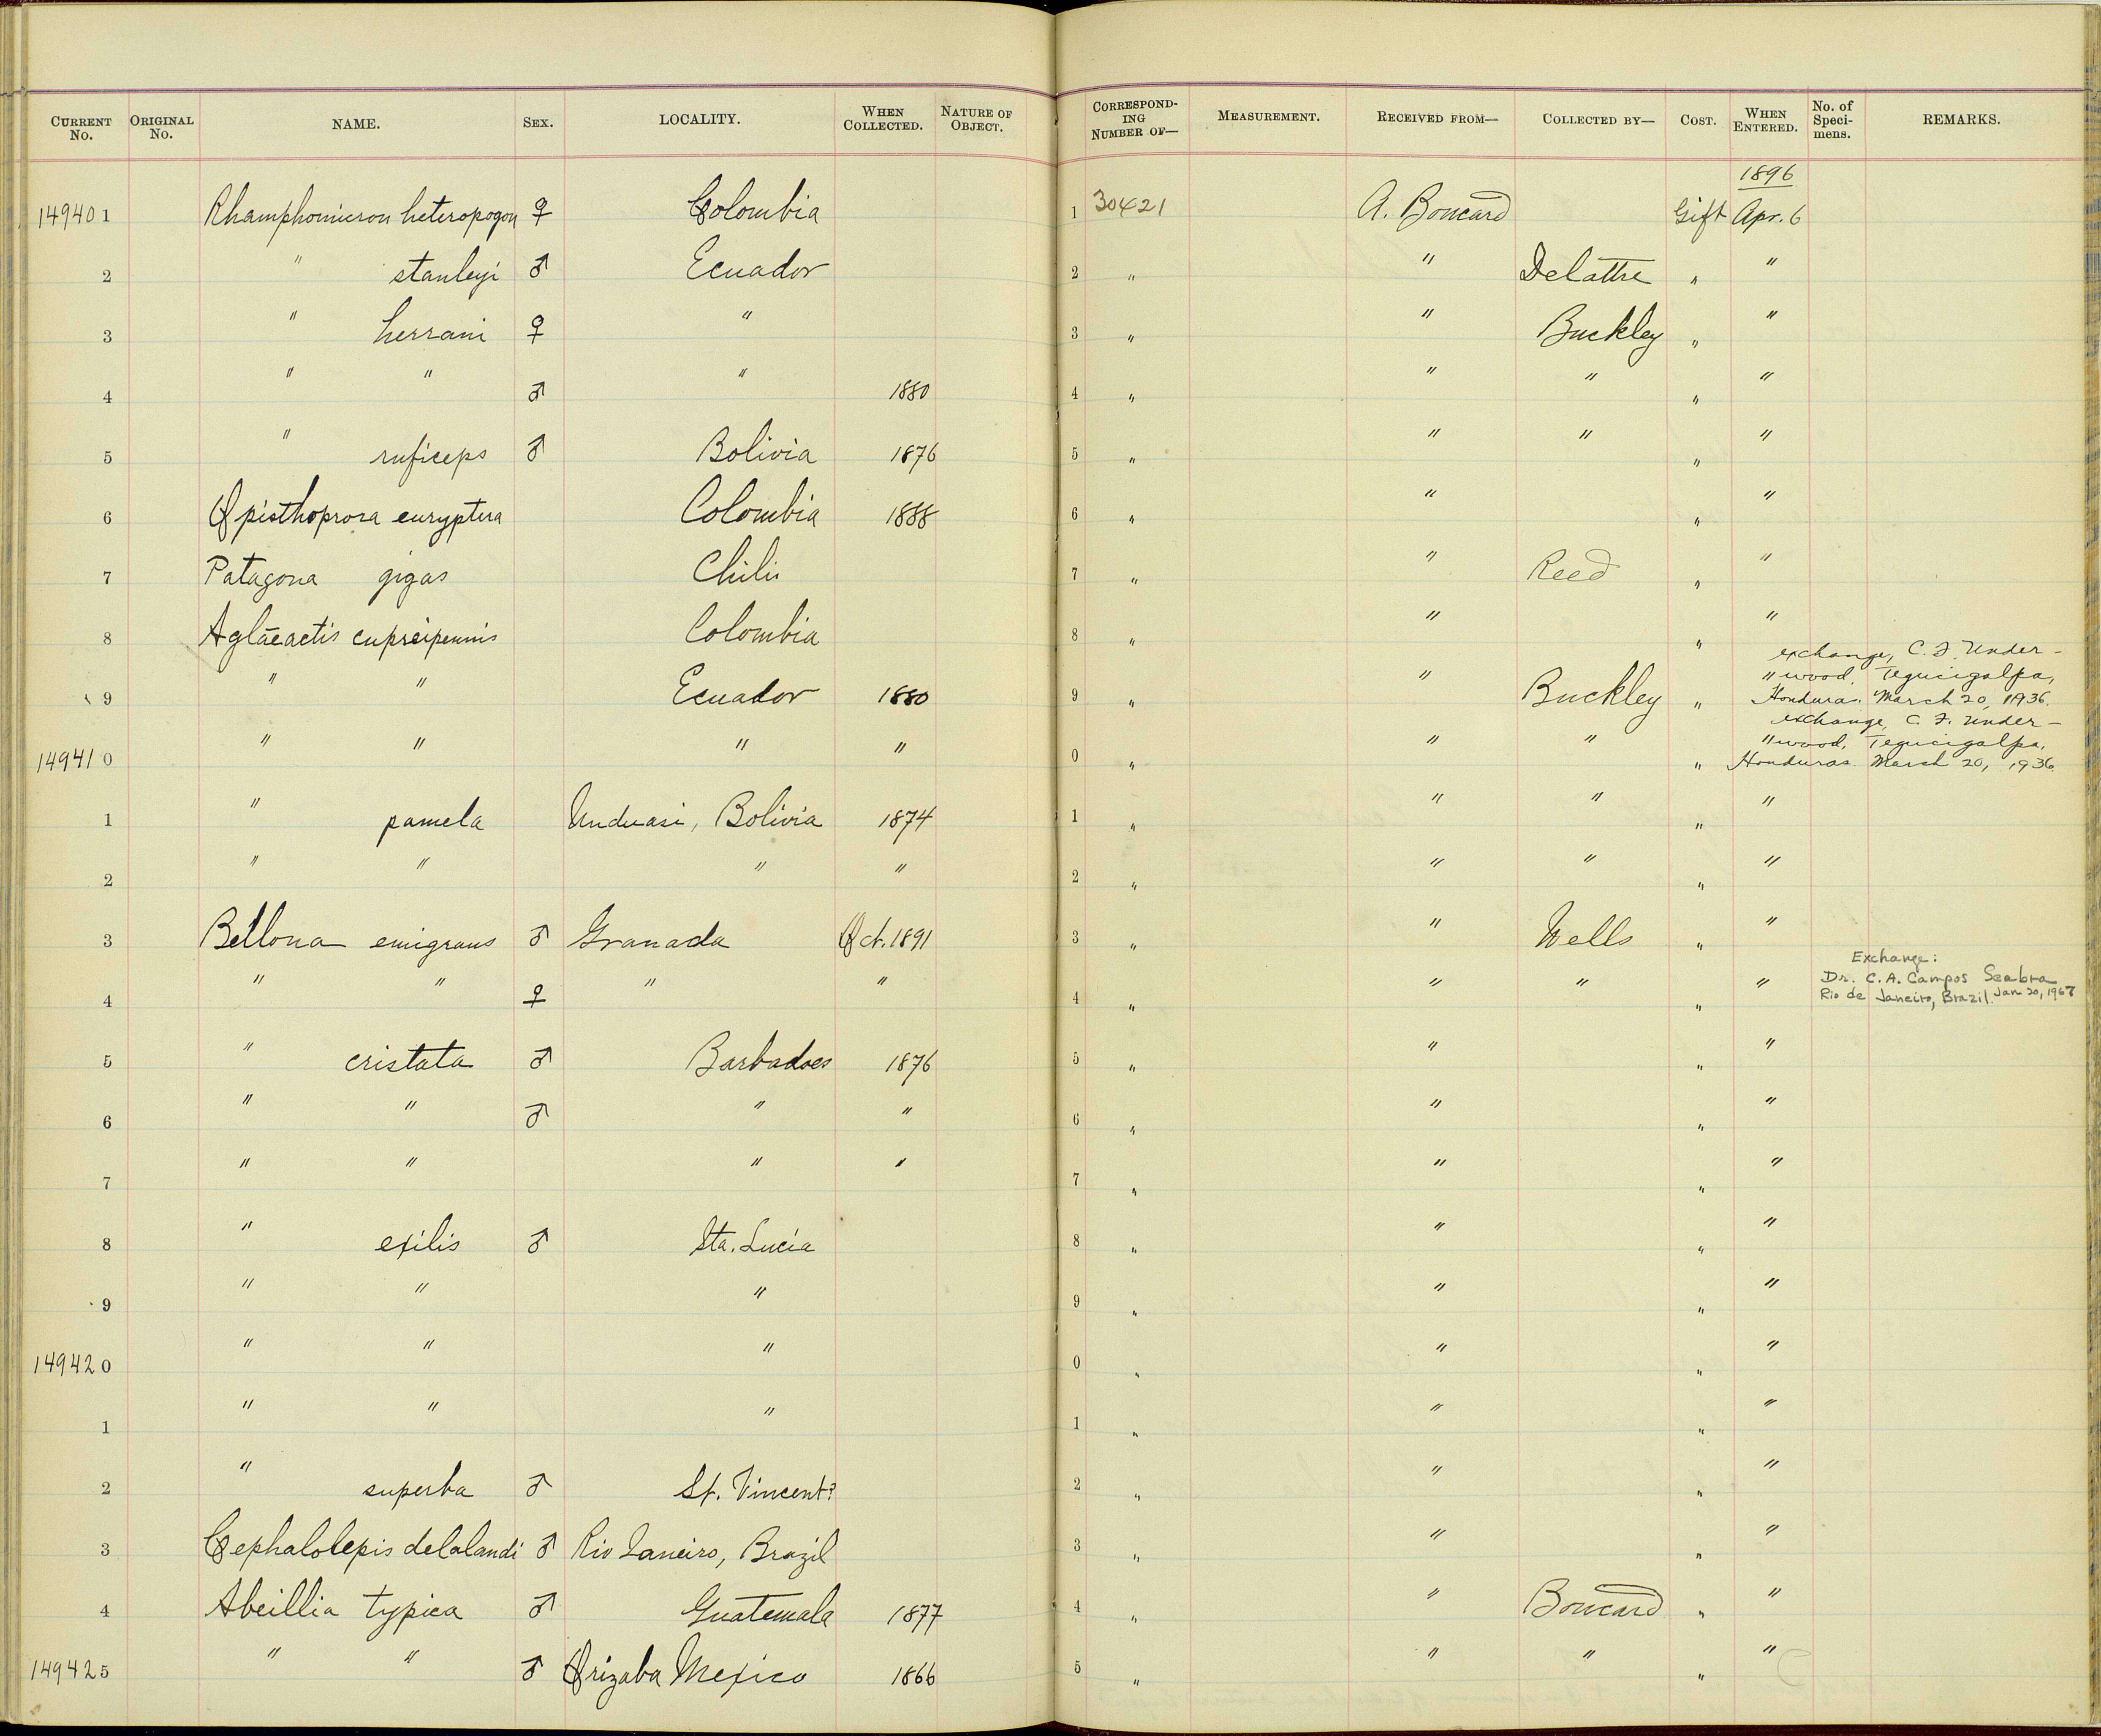 CURRENT No. ORIGINAL No. NAME. SEX. LOCALITY. WHEN COLLECTED. NATURE OF OBJECT. CORRESPONDING NUMBER OF— MEASUREMENT. RECEIVED FROM— COLLECTED BY— COST. WHEN ENTERED. No. of Specimens. REMARKS.
1896
149401 Rhamphomicron heteropogon ♀ Colombia 1 30421 A. Boucard Gift Apr. 6
2 " stanleyi ♂ Ecuador 2 " " Delattre " "
3 " herrani ♀ " 3 " " Buckley " "
4 " " ♂ " 1880 4 " " " " "
5 " ruficeps ♂ Bolivia 1876 5 " " " " "
6 Opisthoprora euryptera Colombia 1888 6 " " " "
7 Patagona gigas Chili 7 " " Reed " "
8 Aglaeactis cupreipennis Colombia 8 " " " "
9 " " Ecuador 1880 9 " " Buckley " " exchange, C. F. Under-
wood, Tegucigalpa,
Honduras. March 20, 1936.
149410 " " " " 0 " " " " " exchange, C. F. Under-
wood, Tegucigalpa,
Honduras. March 20, 1936.
1 " pamela Unduasi, Bolivia 1874 1 " " " " "
2 " " " " 2 " " " " "
3 Bellona emigrans ♂ Granada Oct. 1891 3 " " Wells " "
4 " " ♀ " " 4 " " " " " Exchange:
Dr. C. A. Campos Seabra
Rio de Janeiro, Brazil. Jan 20, 1967
5 " cristata ♂ Barbadoes 1876 5 " " " "
6 " " ♂ " " 6 " " " "
7 " " " " 7 " " " "
8 " exilis ♂ Sta. Lucia 8 " " " "
9 " " " 9 " " " "
149420 " " " 0 " " " "
1 " " " 1 " " " "
2 " superba ♂ St. Vincent? 2 " " " "
3 Cephalolepis delalandi ♂ Rio Janeiro, Brazil 3 " " " "
4 Abeillia typica ♂ Guatemala 1877 4 " " Boucard " "
149425 " " ♂ Orizaba Mexico 1866 5 " " " " "